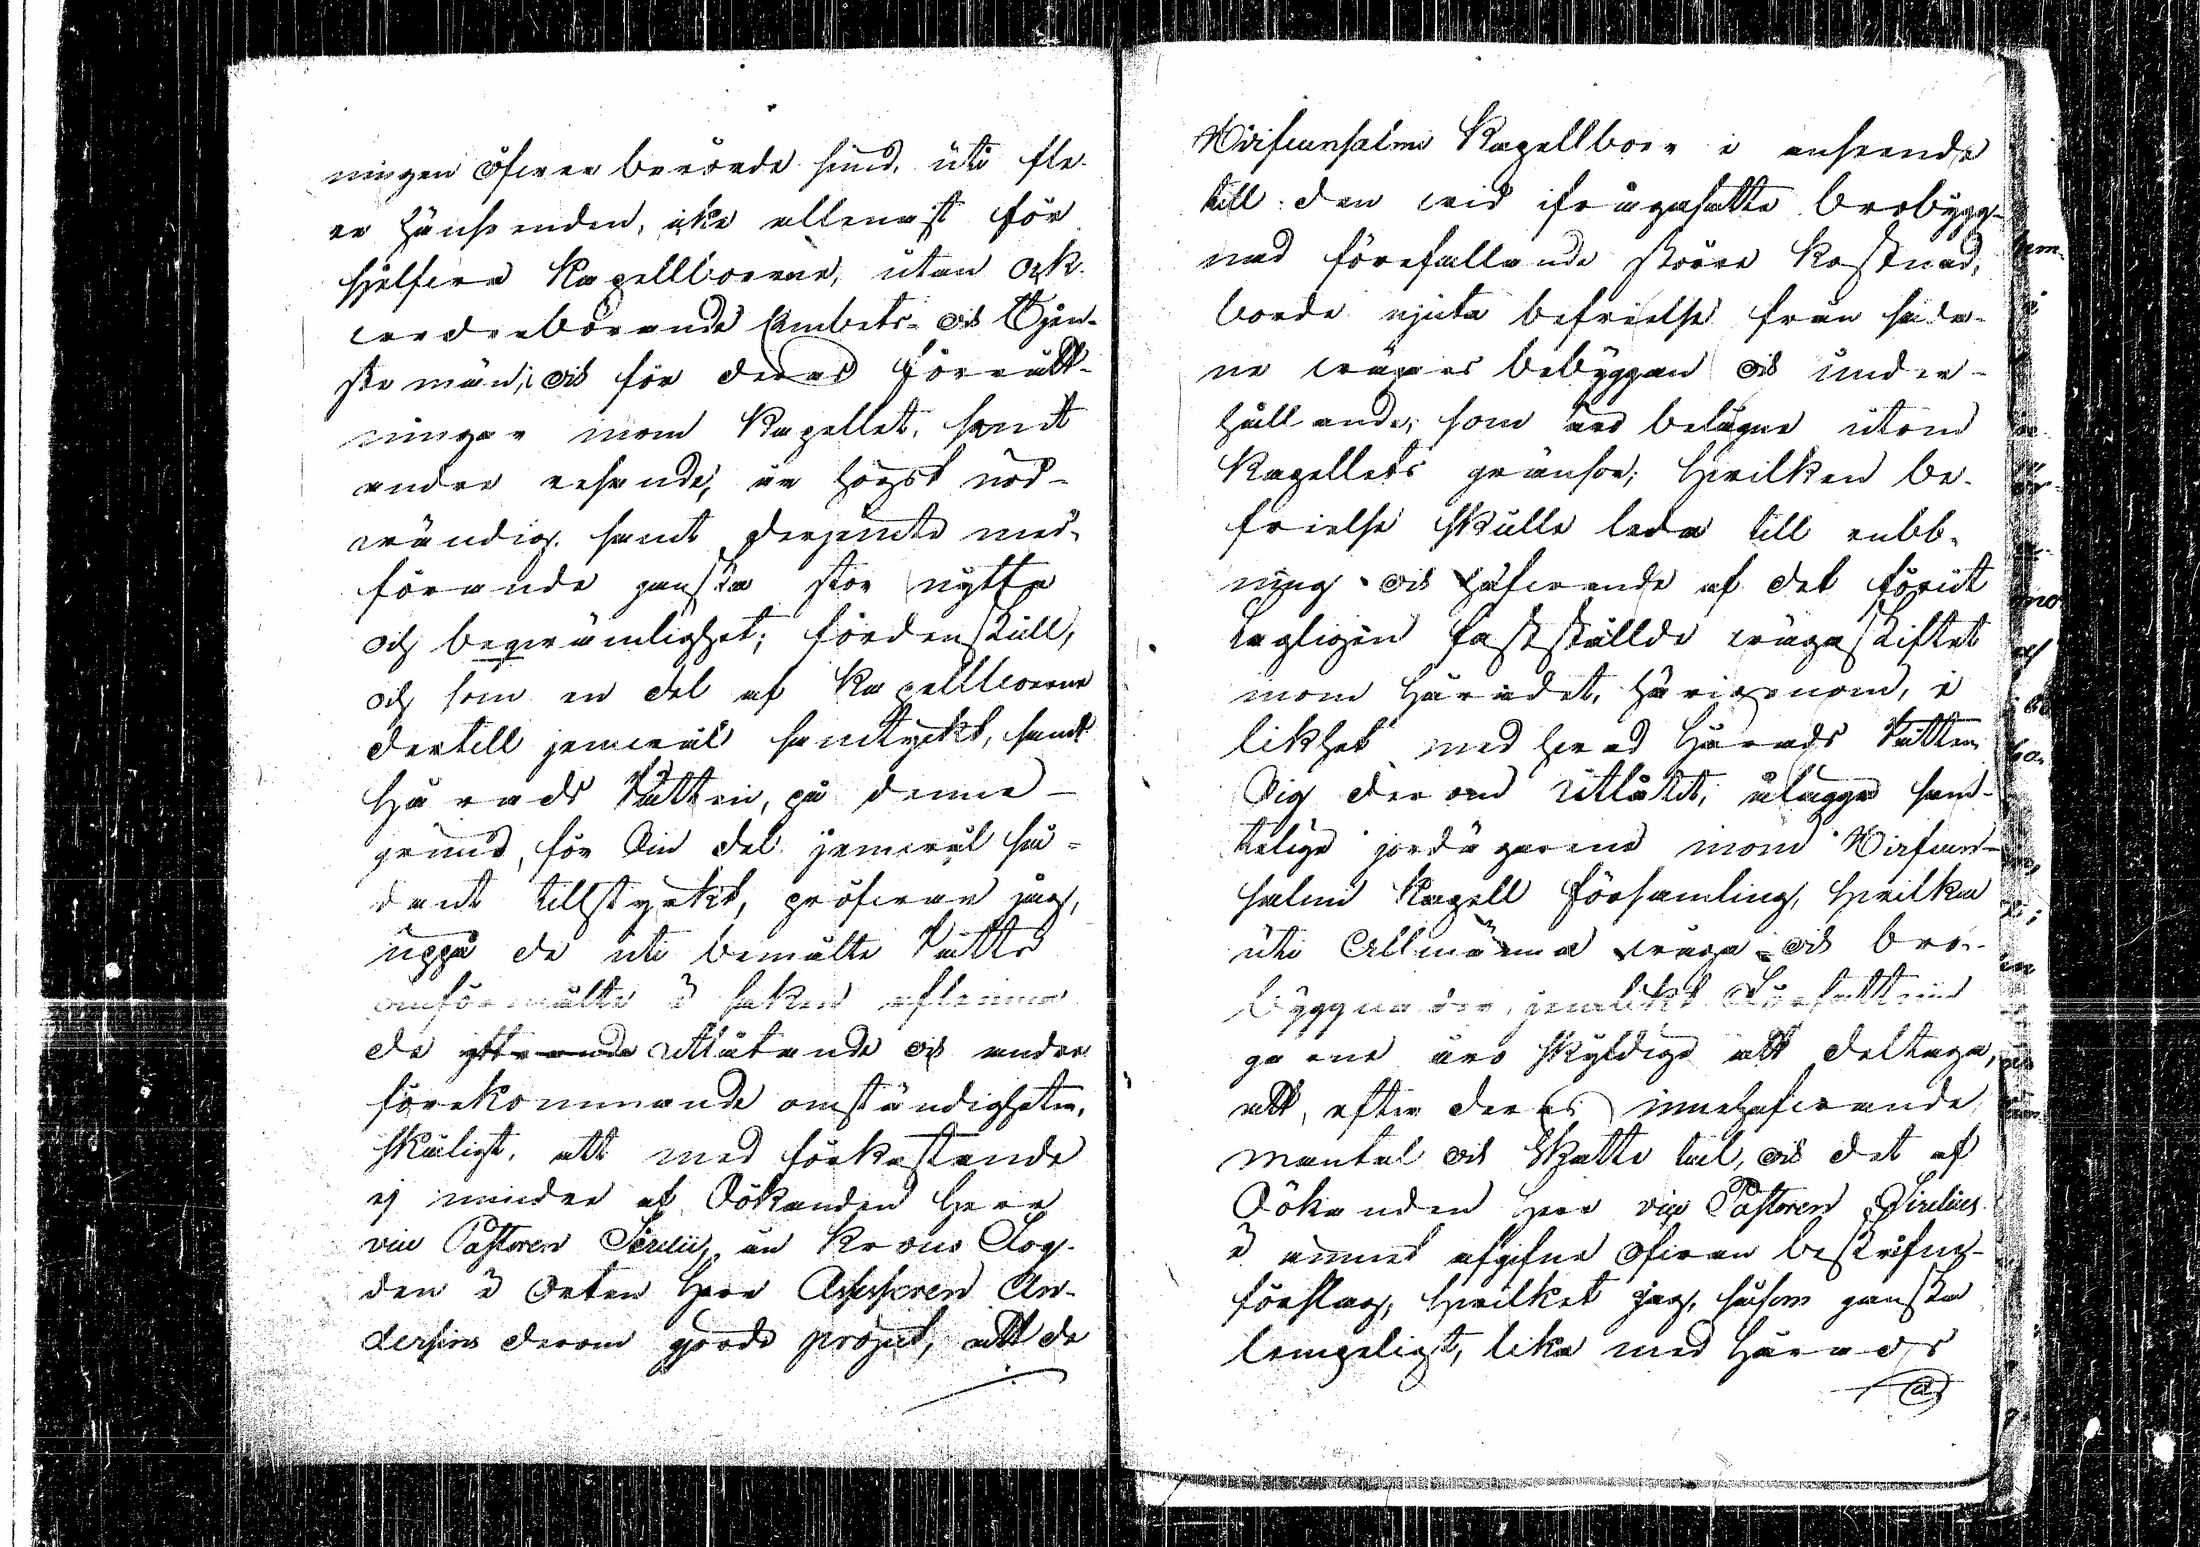 ningen öfwer berörde sund, uti fle-
re hänseenden, icke allenast för
sjelfwa Kapellboerne, utan ock
wederbörande Embets- och Tjen-
stemän, och för deras förrätt-
ningar inom Kapellet, samt
andra resande, är högst nöd-
wändig, samt derjemte med-
förande ganska stor nytta
och beqwämlighet; fördenskull,
och som en del af Kapellboerne
dertill jemwäl samtyckt, samt
Härads Rätten, på denne
grund, för Sin del jemwäl så-
dant tillstyrkt, pröfwar jag,
uppå de uti bemälte Rätts
anförmälte i saken aflemna
de utlåtande och andre
förekommande omständigheter,
skäligt, att med förkastande
ej mindre af Sökanden Herr
vice Pastoren Sirelii, än Krono Fog-
den i Orten Herr Assessoren An-
dersins derom gjorde project, att de
Wirfwansalmi Kapellboer i anseende
till den wid ifrågasatte brobygg-
nad förefallande större kostnad,
borde njuta befrielse från såda-
ne wägars bebyggan och under-
hållande, som äro belägne utom
Kapellets gränsor; hwilken be-
frielse skulle leda till rubb-
ning och häfwande af det förut
lagligen fastställde wägaskiftet
inom Häradet, härigenom, i
likhet med hwad Härads Rätten
Sig derom utlåtit, ålägga samt-
telige jordägarene inom Wirfwan-
salmi Kapell församling, hwilka
uti Allmänna wäga- och bro-
byggnader, jemlikt Författnin
garne äro skyldige att deltaga,
att, efter deras innehafwande
mantal och Skatte tal, och det af
Sökanden Herr vice Pastoren Sirelius
i ämnet afgifne ofwan beskrefne
förslag, hwilket jag, såsom ganska
lempeligt, lika med Härads